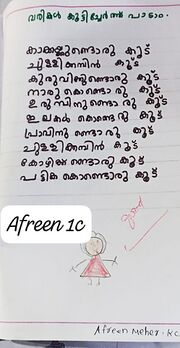 വരികൾ കൂട്ടിച്ചേർത്ത് പാടാം.
കാക്കക്കുണ്ടൊരു കൂട്
ചുള്ളിക്കമ്പിൻ കൂട്
കുരുവിക്കുണ്ടൊരു കൂട്
നാരു കൊണ്ടൊരു കൂട്
ഉറുമ്പിനുണ്ടൊരു കൂട്
ഇലകൾ കൊണ്ടൊരു കൂട്
പ്രാവിനുണ്ടൊരു കൂട്
ചുള്ളിക്കമ്പിൻ കൂട്
കോഴിക്കുണ്ടൊരു കൂട്
പട്ടിക കൊണ്ടൊരു കൂട്
good
Afreen 1c
Afreen Meher